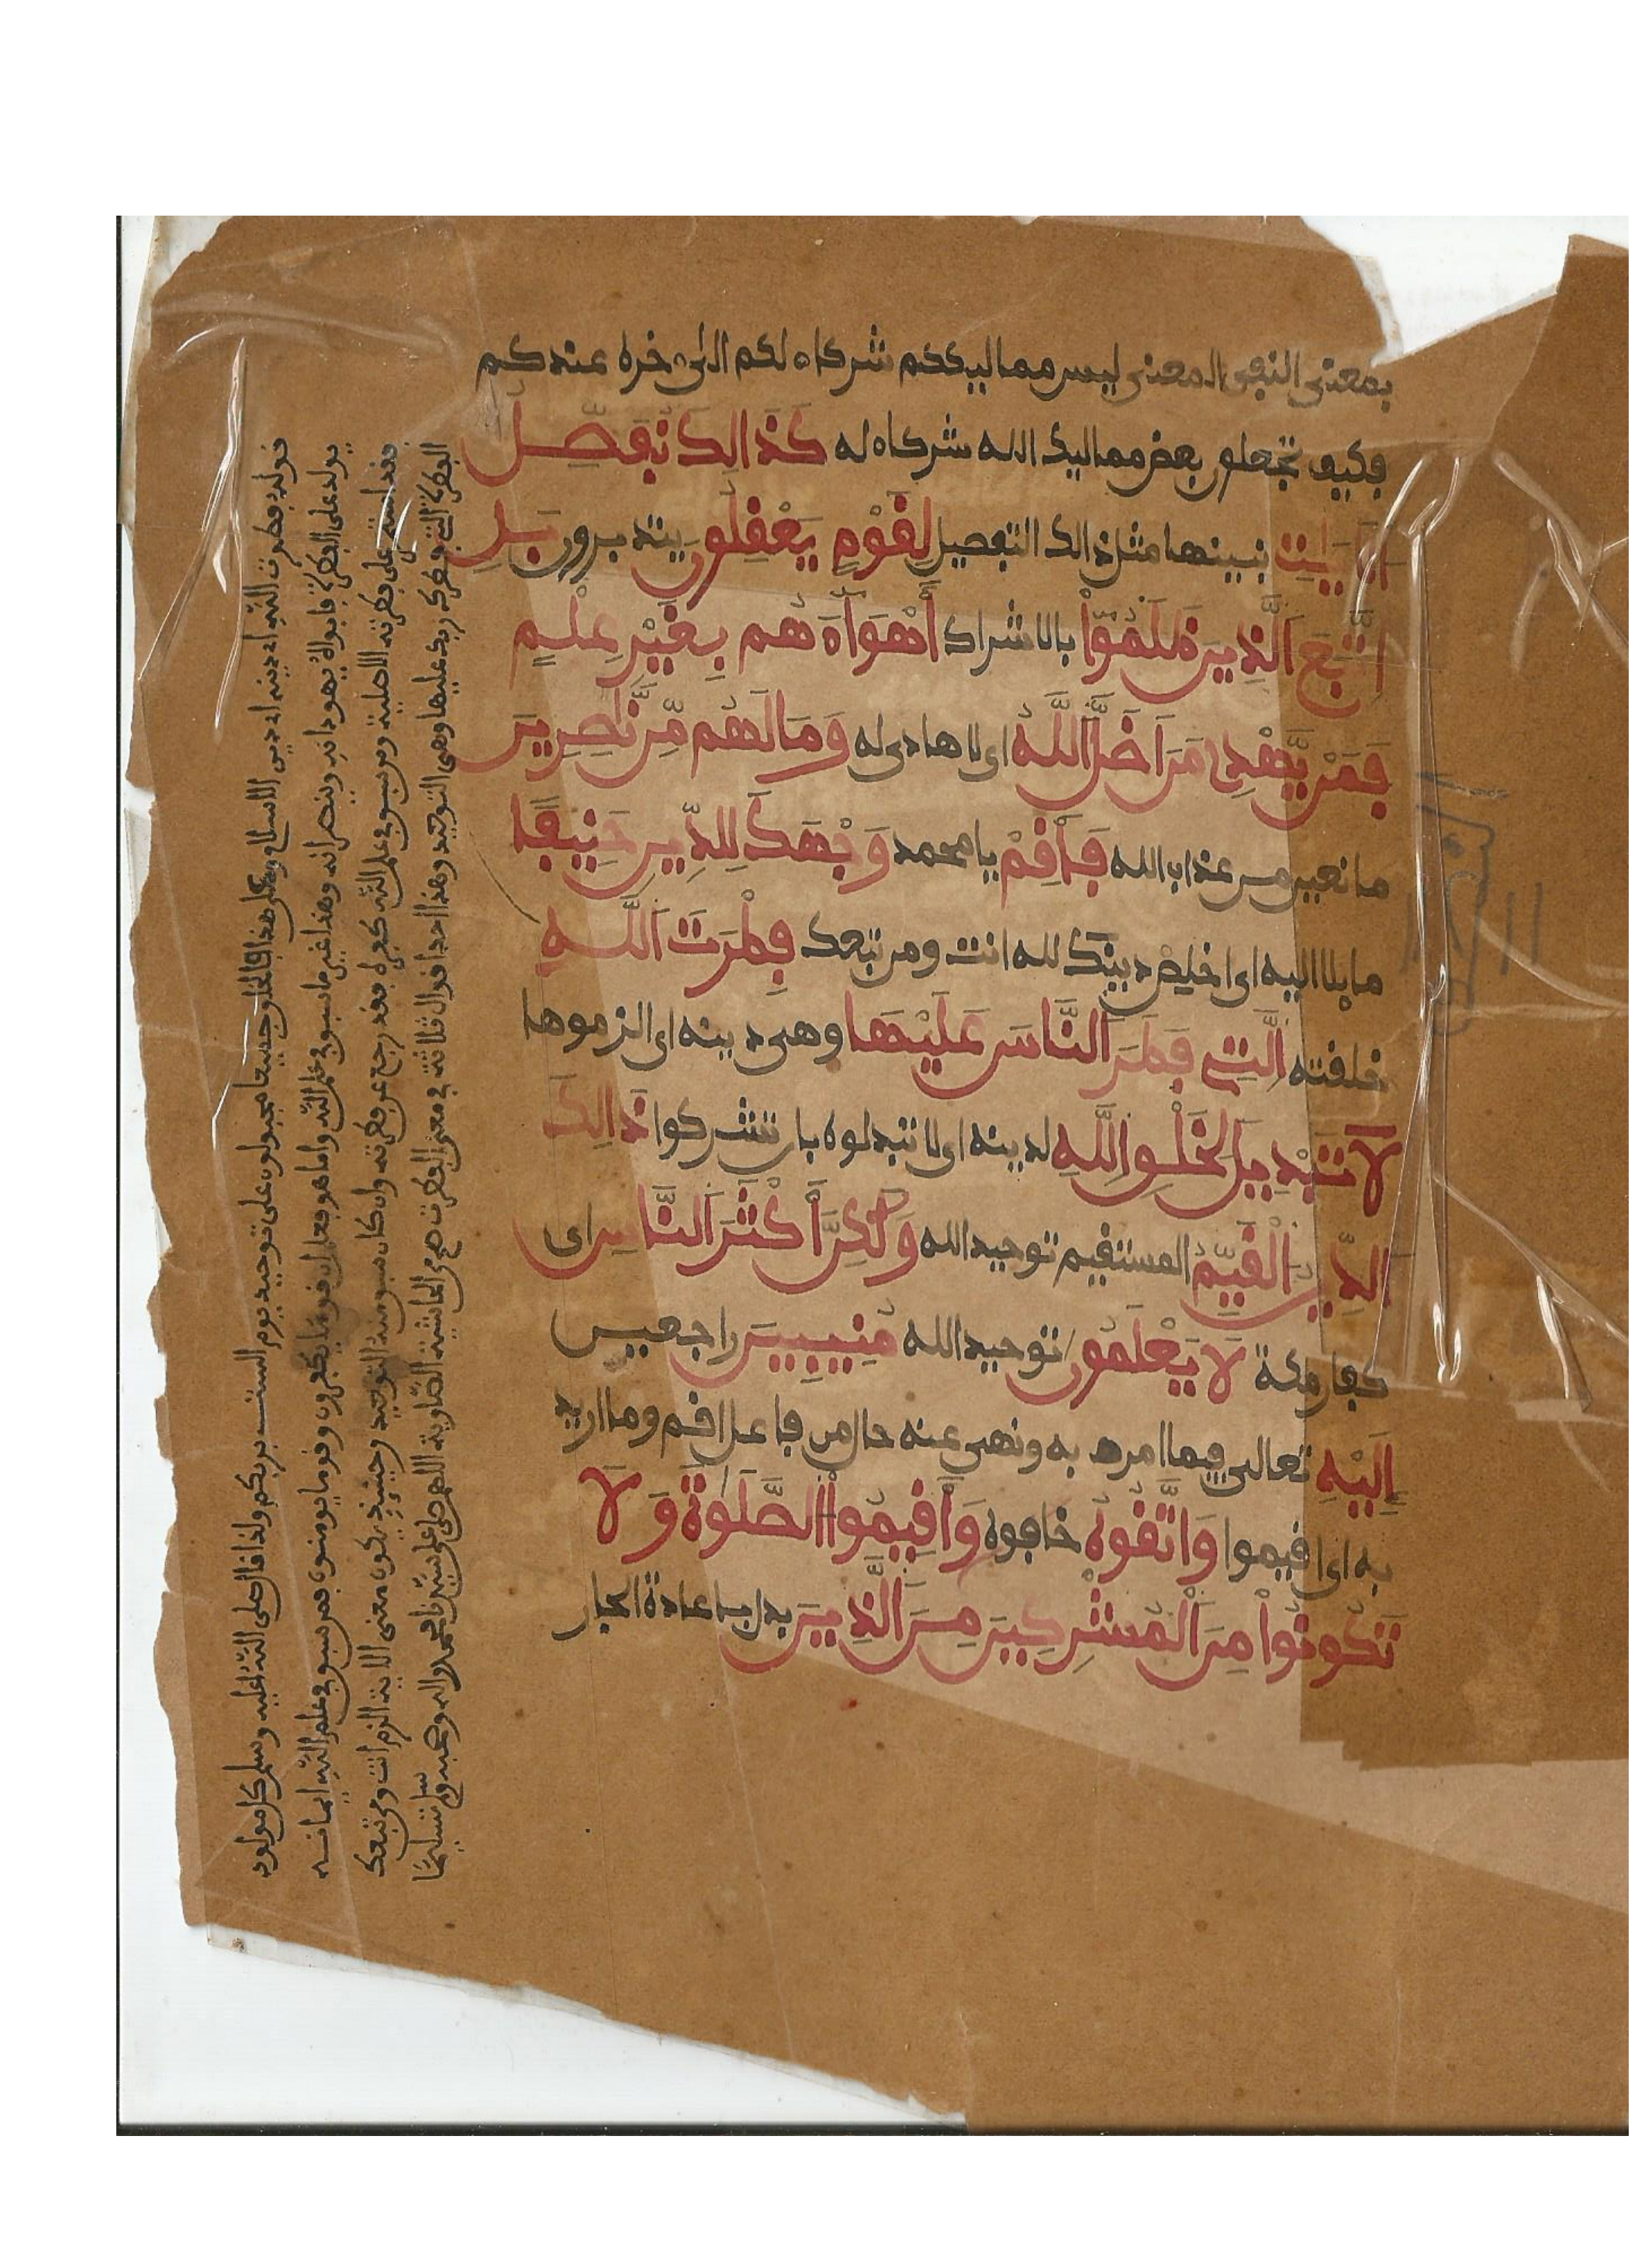 بمعنى النفي المعنى ليس مماليككم شركاء لكم الى ءاخره عندكم
فكيف تجعلون بعض مماليك الله شركاء له كَذَالِكَ نُفَصِّلُ
اَلَايَـٰتِ نبينها مثل ذالك التفصيل لِقَوْمٍ يَعْقِلُونَ يتدبرون بَلِ
اِتَّبَعَ اَلذِينَ ظَلَمُوٓاْ بالاشراك أَهْوَآءَهُم بِغَيْرِ عِلْمٍ
فَمَنْ يَّهْدِے مَنَ اَضَلَّ اَللَّهُ اى لا هادى له وَمَا لَهُم مِّن نَّـٰصِرِينَ
مانعين من عذاب الله فَأَقِمْ يا محمد وَجْهَكَ لِلدِّينِ حَنِيفا
مايلا اليه اى اخلص دينك لله انت ومن تبعك فِطْرَتَ اَللَّهِ
خلقته اَلتِے فَطَرَ اَلنَّاسَ عَلَيْهَا وهى دينه اى الزموها
لَا تَبْدِيلَ لِخَلْقِ اِللَّهِ لدينه اى لا تبدلوه بان تشركوا ذَالِكَ
اَلدِّينُ اُلْقَيِّمُ المستقيم توحيد الله وَلَـٰكِنَّ أَكْثَرَ اَلنَّاسِ اى
كفار مكة لَا يَعْلَمُونَ توحيد الله مُنِيبِينَ راجعين
إِلَيْهِ تعالى فيما امر به ونهى عنه حال من فاعل اقم وما اريد
به اى اقيموا وَاتَّقُوهُ خافوه وَأَقِيمُواْ اُلصَّلَوٰةَ وَلَا
تَكُونُواْ مِنَ اَلْمُشْرِكِينَ مِنَ اَلذِينَ بدل باعادة الجار
قوله فطرت الله اى دينه اى دين الاسلام وعلى هذا فالخلق جميعا مجبولون على توحيد يوم الست بربكم ولذا قال صلى الله عليه وسلم كل مولود
يولد على الفطرة فابواه يهودانه وينصرانه وهذا غير ما سبق فى علم الله واما هو فعل ان قوما يكفرون وقوما يومنون فمن سبق فى علم الله ايمانه
فقد استمر على فطرته الاصلية ومن سبق فى علم الله كفره فقد رجع عن فطرته وان كان سبق منه التوحيد وحينئذ يكون معنى الاية الزم انت ومن تبعك
الفطرة التى فطرك ربك عليها وهى التوحيد وهذا احد اقوال ثلاثة فى معنى الفطرت صح من الحاشية الصاوية اللهم صل على سيدنا محمد واله وصحبه وسلم تسليما